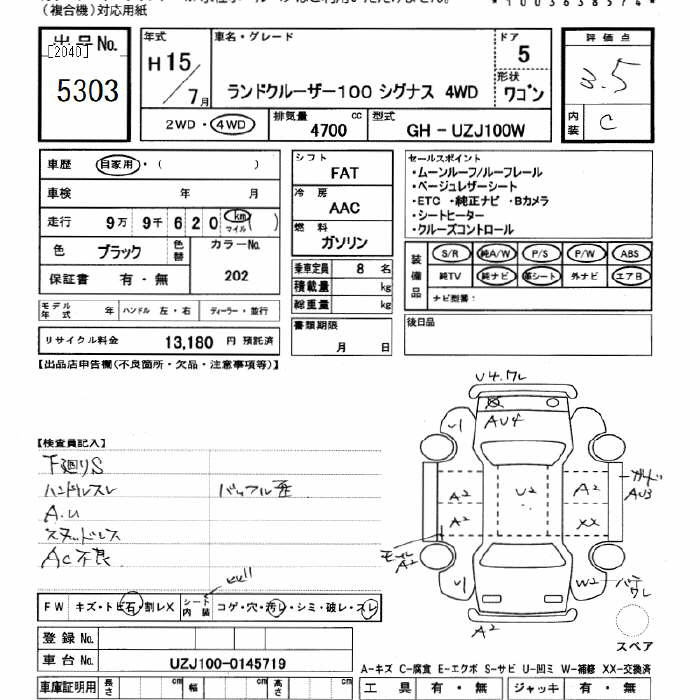 (複合機)対応用紙
*1003638574*
出品No.
[2040]
5303
年式
H15/7月
車名・グレード
ランドクルーザー100 シグナス 4WD
ドア
5
形状
ワゴン
評価点
3.5
内装
C
2WD・4WD
排気量
4700 cc
型式
GH - UZJ100W
車歴 自家用・( )
車検 年 月
走行 9万 9千 6 2 0 km マイル ( )
色 ブラック
色替
カラーNo.
202
保証書 有・無
シフト
FAT
冷房
AAC
燃料
ガソリン
乗車定員 8 名
積載量 kg
総重量 kg
セールスポイント
・ムーンルーフ/ルーフレール
・ベージュレザーシート
・ETC ・純正ナビ ・Bカメラ
・シートヒーター
・クルーズコントロール
装備品
S/R 純A/W P/S P/W ABS
純TV 純ナビ 革シート 外ナビ エアB
ナビ型番:
モデル年式 年 ハンドル 左・右 ディーラー・並行
リサイクル料金 13,180 円 預託済
書類期限
月 日
後日品
【出品店申告欄(不良箇所・欠品・注意事項等)】
【検査員記入】
下廻りS
ハンドルスレ
A.U
スタッドレス
AC不良
U4.ワレ
AU4
U1
A2
A2
U2
A2
XX
ガード
AU3
モール
A2
U1
W2
A2
スペア
FW キズ・トビ石・割レX
シート内装
コゲ・穴・汚レ・シミ・破レ・スレ
登録No.
車台No. UZJ100-0145719
A-キズ C-腐食 E-エクボ S-サビ U-凹ミ W-補修 XX-交換済
車庫証明用 長さ cm 幅 cm 高さ cm
工具 有・無 ジャッキ 有・無